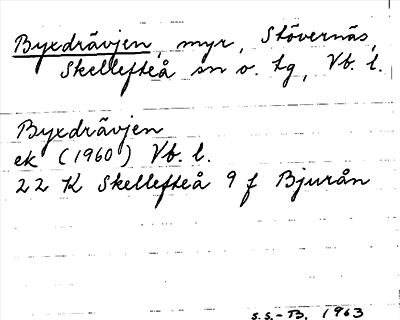 Byxdrävjen, myr, Stövernäs,
Skellefteå sn o. tg, Vb. l.
Byxdrävjen
ek (1960) Vb. l.
22 K Skellefteå 9 f Bjurån
S.S.-B. 1963